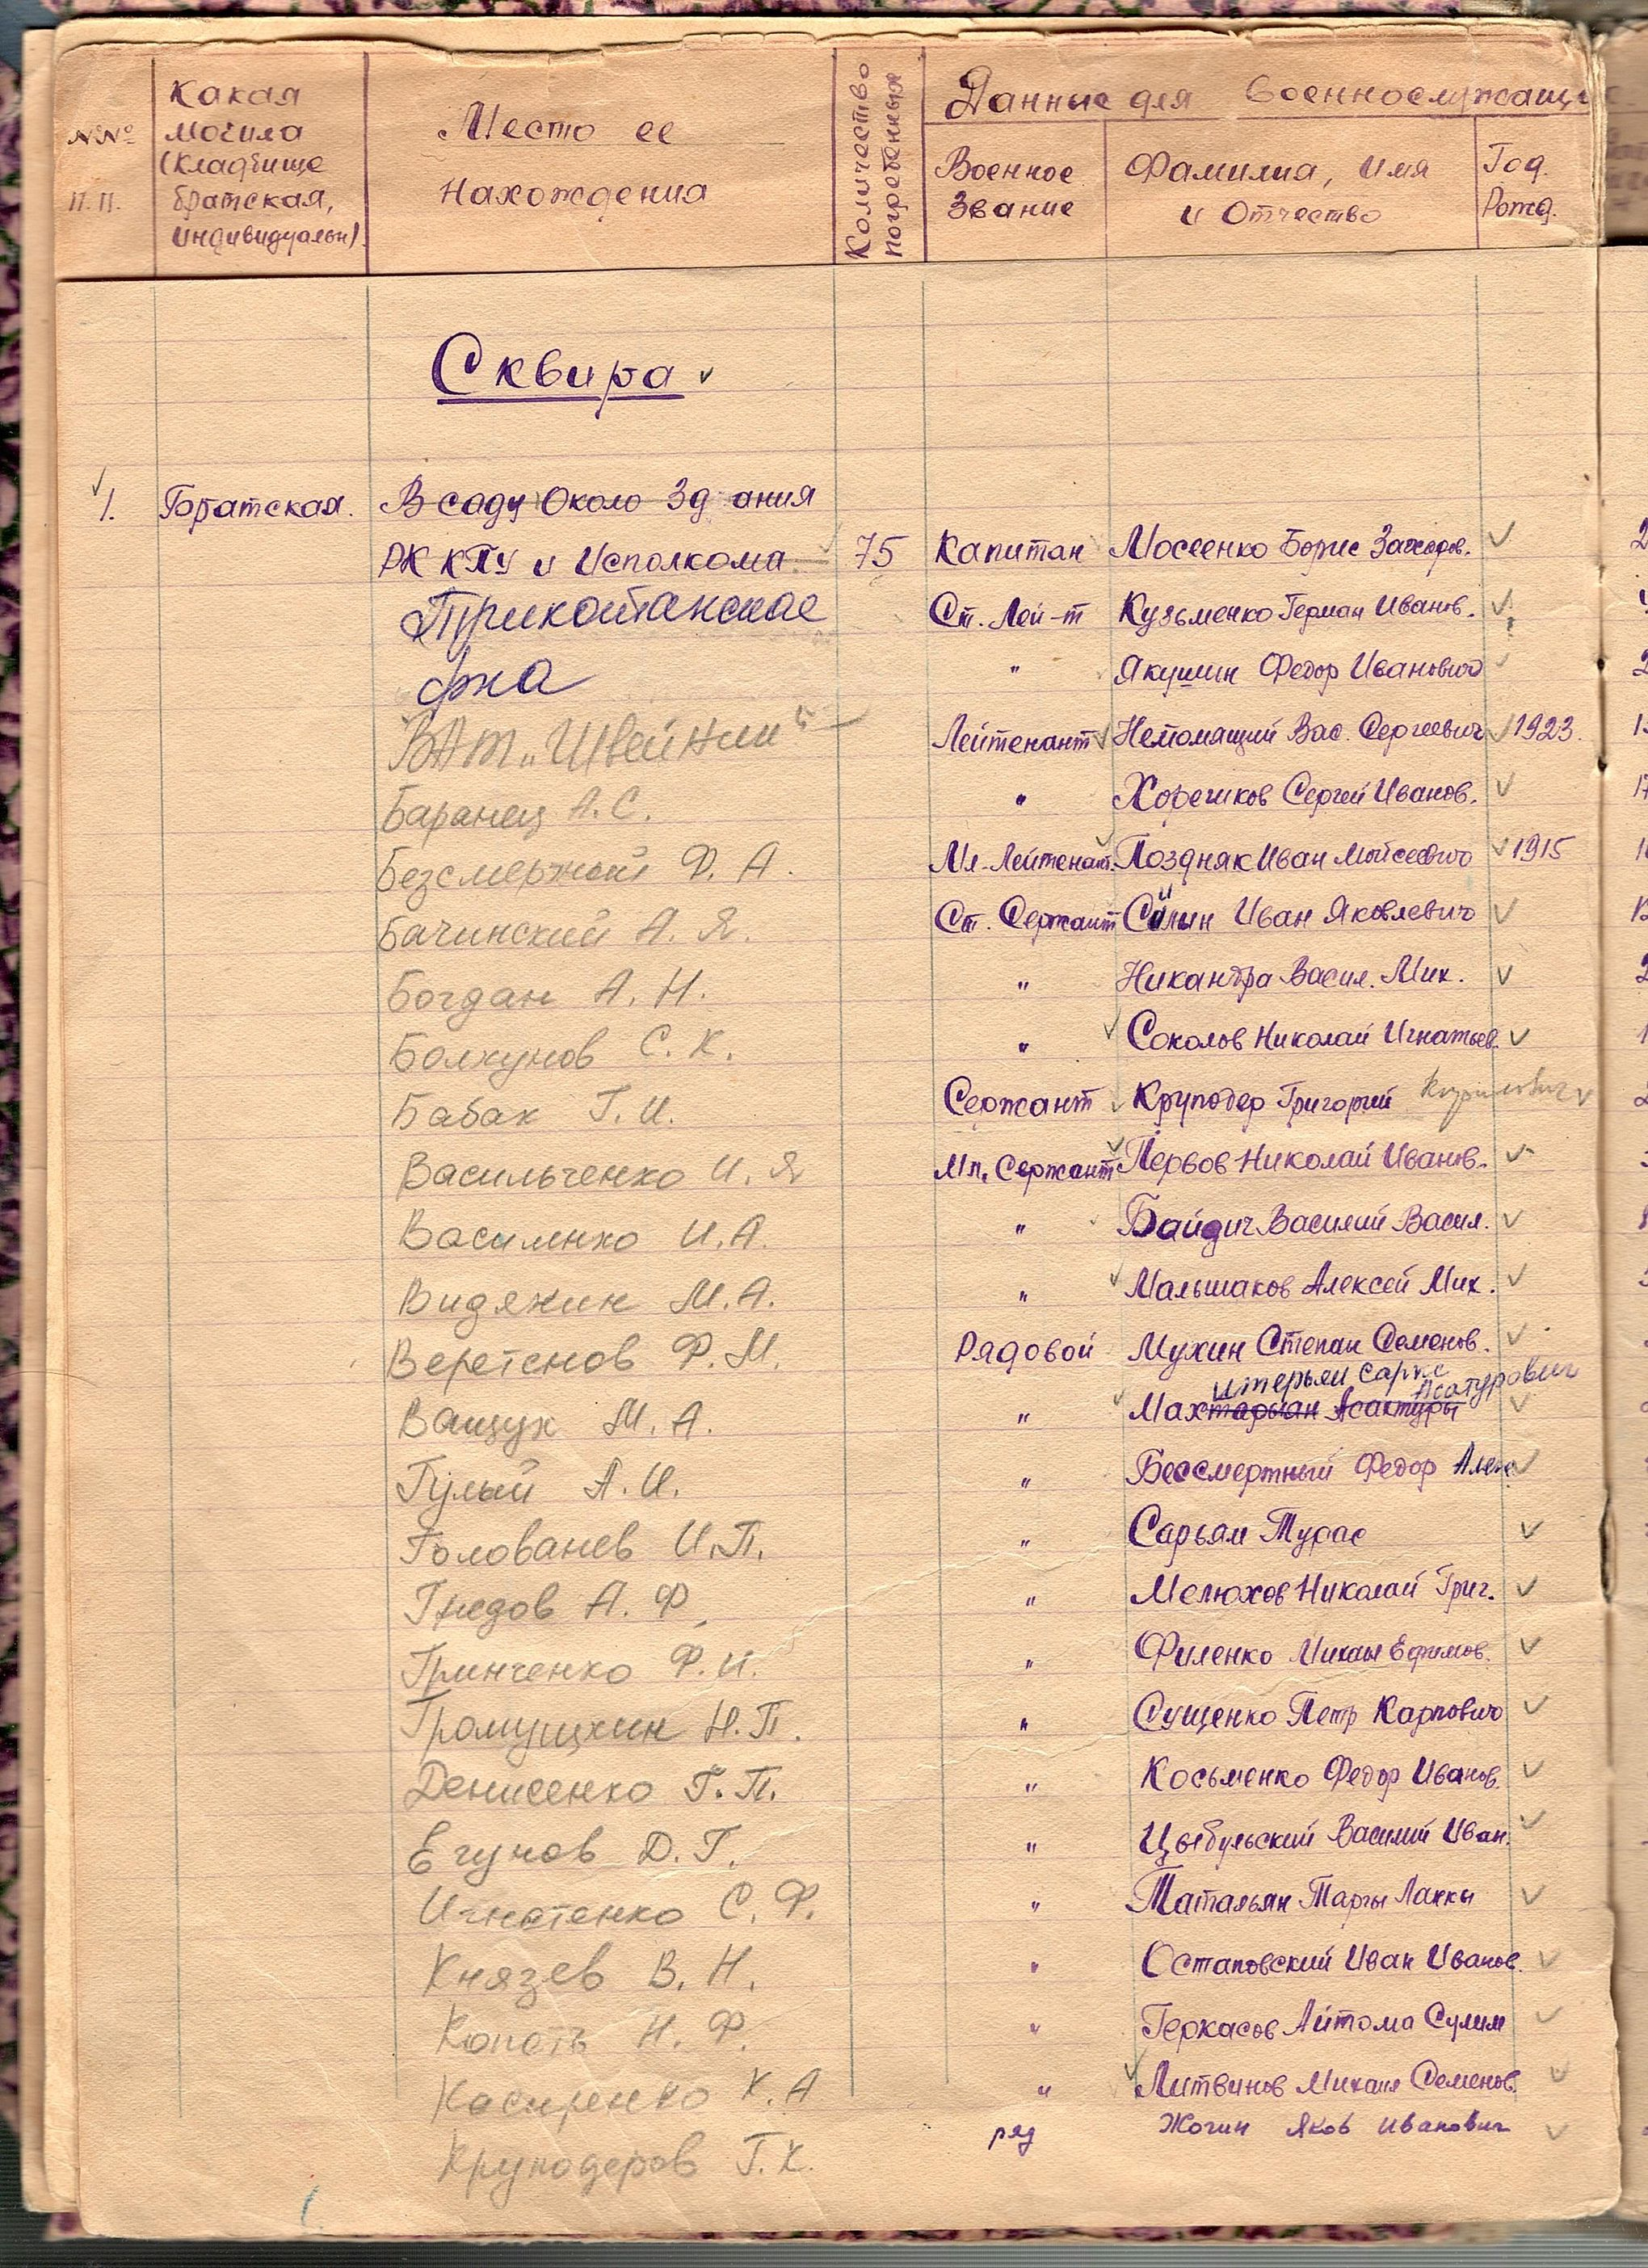 №№ п.п.
Какая могила (кладбище братская, индивидуальн).
Место ее нахождения
Количество погребенных
Данные для военнослужащи
Военное звание
Фамилия, имя и отчество
Год. Рожд.
Сквира
1. Братская. В саду около здания
РК КПУ и Исполкома 75 Капитан Мосеенко Борис
Трикотажная Ст. Лей-т Кузьменко Герман Иванов.
ф-ка " Якушин Федор Иванович
ВАТ „Швейник" Лейтенант Немомящий Вас. Сергеевич 1923.
Баранец А.С. " Хорешков Сергей Иванов.
Безсмертный Ф. А. Мл-Лейтенант. Поздняк Иван Мойсеевич 1915
Бачинский А. Я. Ст. Сержант Силин Иван Яковлевич
Богдан А. Н. " Никандра Васил. Мих.
Болкунов С. К. " Соколов Николай Игнатьев.
Бабак Г. И. Сержант Круподер Григорий Кирилович
Васильченко И. Я Мл. Сержант Первов Николай Иванов.
Василенко И. А. " Байдич Василий Васил.
Видякин М. А. " Мальшаков Алексей Мих.
Веретенов Ф. М. Рядовой Мухин Степан Семенов.
итерьян Сарис Асатурович
Ващук М. А. " Махтарьян Асактуры
Гулый А. И. " Бессмертный Федор Алек
Голованев И. П. " Сарьям Турас
Гнедов А. Ф. " Мелюхов Николай Григ.
Гринченко Ф. И. " Филенко Михаил Ефимов.
Громушкин Н. П. " Сущенко Петр Карпович
Денисенко Г. П. " Косьменко Федор Иванов.
Егунов Д. Г. " Цыбульский Василий Иван.
Игнатенко С. Ф. " Татальян Таргы Лакки
Князев В. Н. " Остаповский Иван Иванов.
Копоть Н. Ф. " Геркасов Айтома Сулим
Косиренко К. А " Литвинов Михаил Семенов.
ряд Жогин Яков Иванович
Круподеров Г. К.